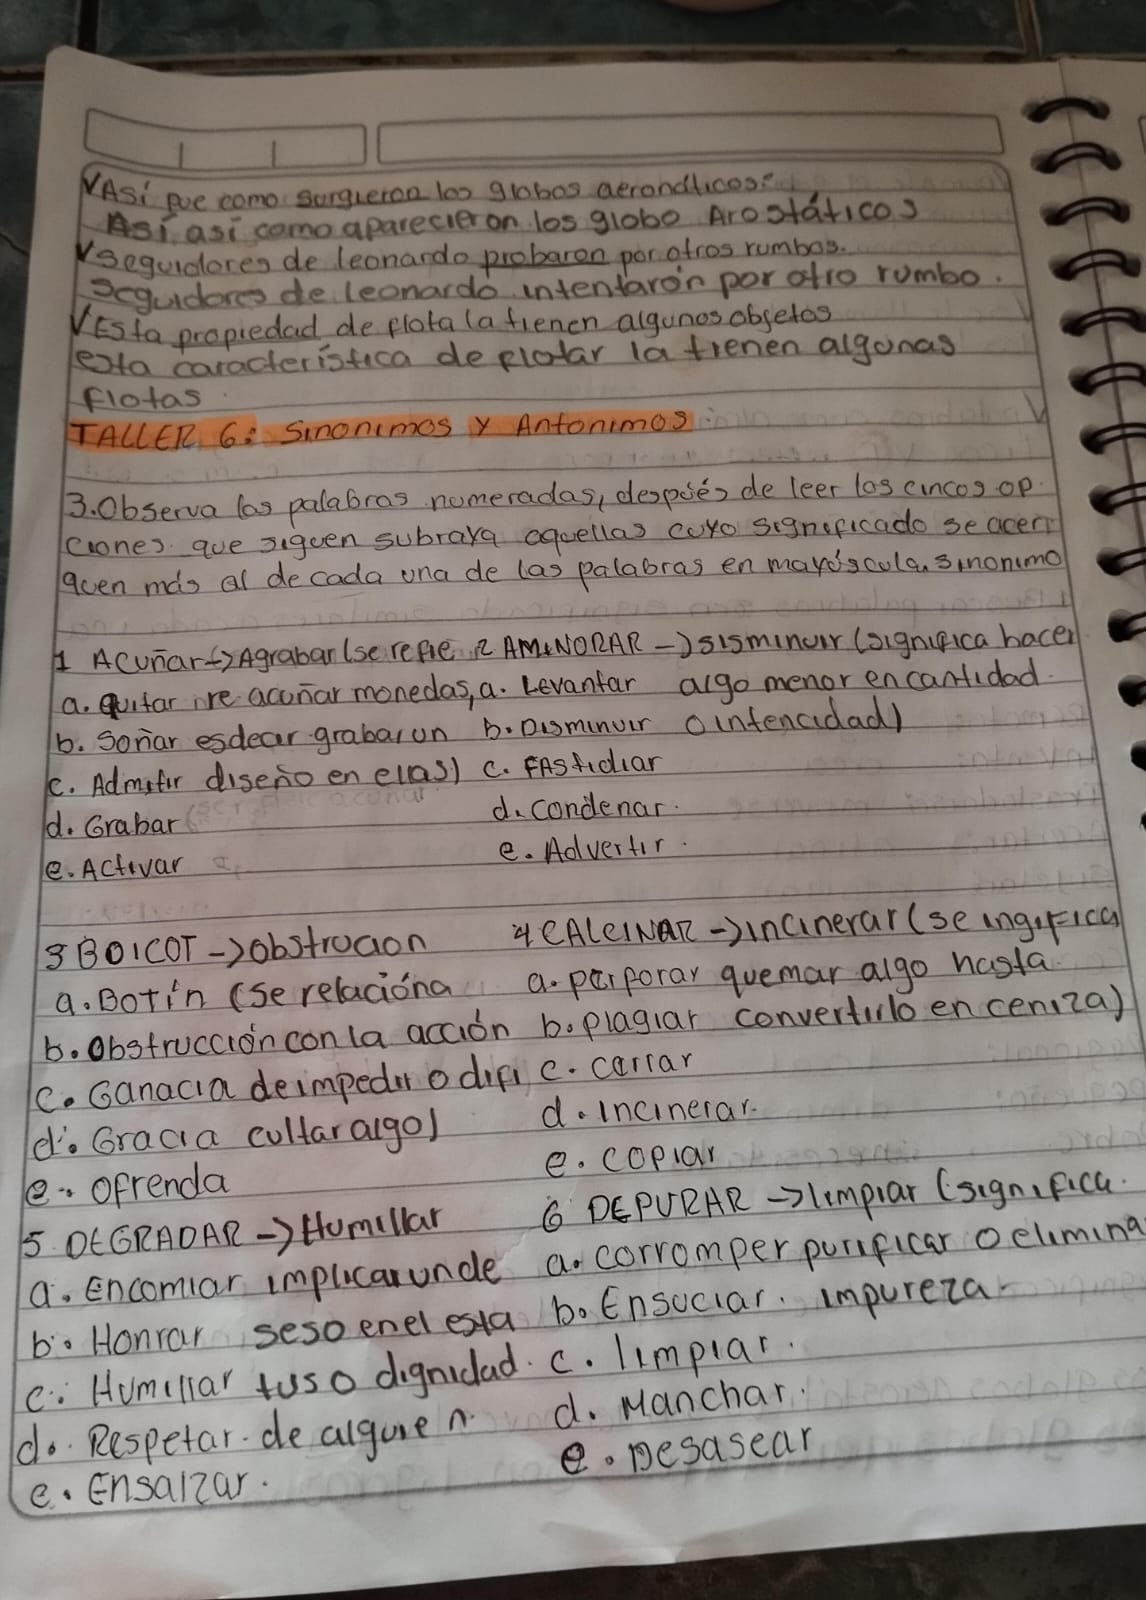 Así fue como surgieron los globos aerondticos:
Así, así como aparecieron los globo Arostáticos
Seguidores de leonardo probaron por otros rumbos.
Seguidores de leonardo intentarón por otro rumbo.
Esta propiedad de flota la tienen algunos objetos
esta característica de flotar la tienen algunas
flotas
TALLER 6: Sinonimos y Antonimos
3. Observa las palabras numeradas, después de leer los cincos op
ciones que siguen subraya aquellas cuyo significado se acer
quen más al de cada una de las palabras en mayúscula. Sinonimo
1 Acuñar -> Agrabar (se refie 2 AMINORAR -> sisminuir (significa hacer
a. quitar re acuñar monedas, a. Levantar algo menor en cantidad.
b. Soñar es decir grabar un b. Disminuir o intencidad)
c. Admitir diseño en ellas) c. FAStidiar
d. Grabar d. Condenar.
e. Activar e. Advertir.
3 BOICOT -> obstrucion 4 CALCINAR -> incinerar (se ingifica
a. Botín (se relacióna a. perforar quemar algo hasta
b. Obstrucción con la acción b. plagiar convertirlo en ceniza)
c. Ganacia de impedir o difi c. cerrar
d. Gracia cultar algo) d. incinerar.
e. ofrenda e. copiar
5. DEGRADAR -> Humillar 6 DEPURAR -> limpiar (significa.
a. Encomiar implicar unde a. corromper purificar o elimina
b. Honrar seso en el esta b. Ensuciar. impureza
c. Humillar tuso dignidad. c. limpiar.
d. Respetar. de alguien. d. Manchar.
e. Ensalzar. e. Desasear